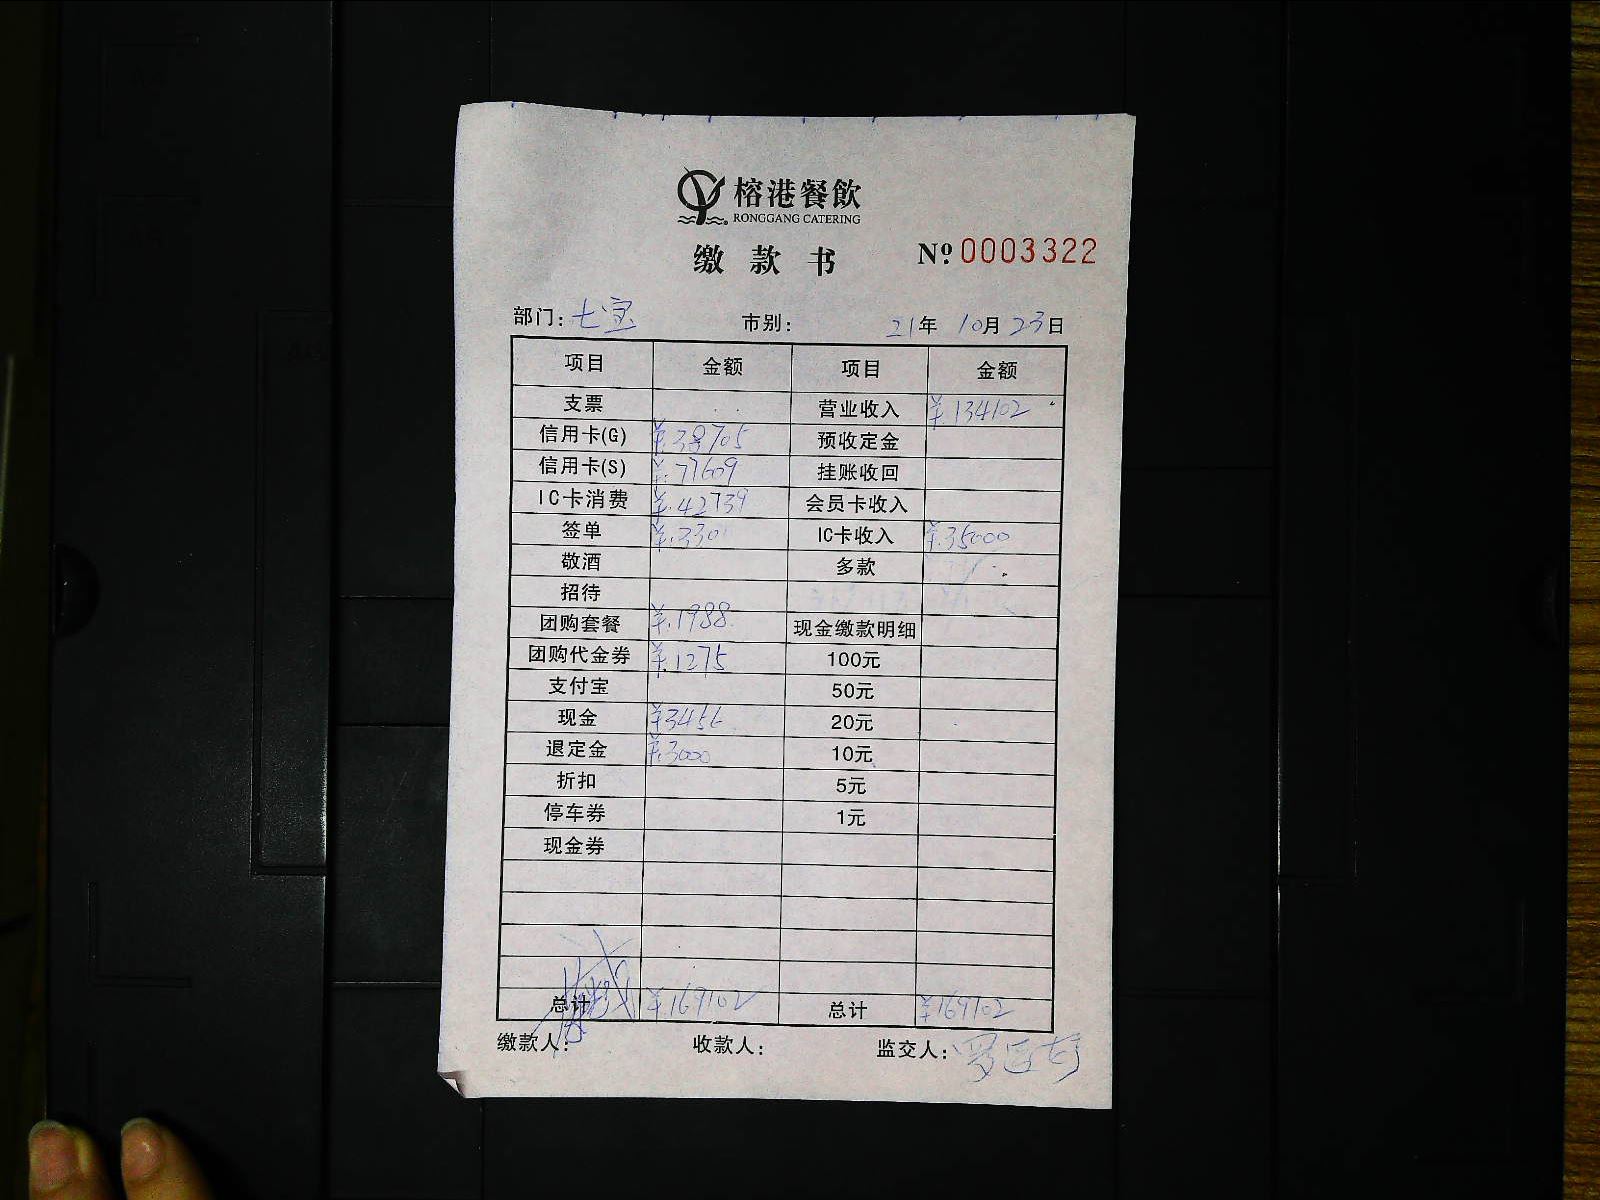 榕港餐飲
RONGGANG CATERING
缴款书 Nº 0003322
部门：七宝 市别： 21年 10月 23日
项目 金额 项目 金额
支票 营业收入 ¥.134102
信用卡(G) ¥.38705 预收定金
信用卡(S) ¥.77609 挂账收回
IC卡消费 ¥.42739 会员卡收入
签单 ¥.330 IC卡收入 ¥.35000
敬酒 多款
招待
团购套餐 ¥.1988 现金缴款明细
团购代金券 ¥.1275 100元
支付宝 50元
现金 ¥3456 20元
退定金 ¥.3000 10元
折扣 5元
停车券 1元
现金券
总计 ¥.169102 总计 ¥169102
缴款人： 收款人： 监交人：